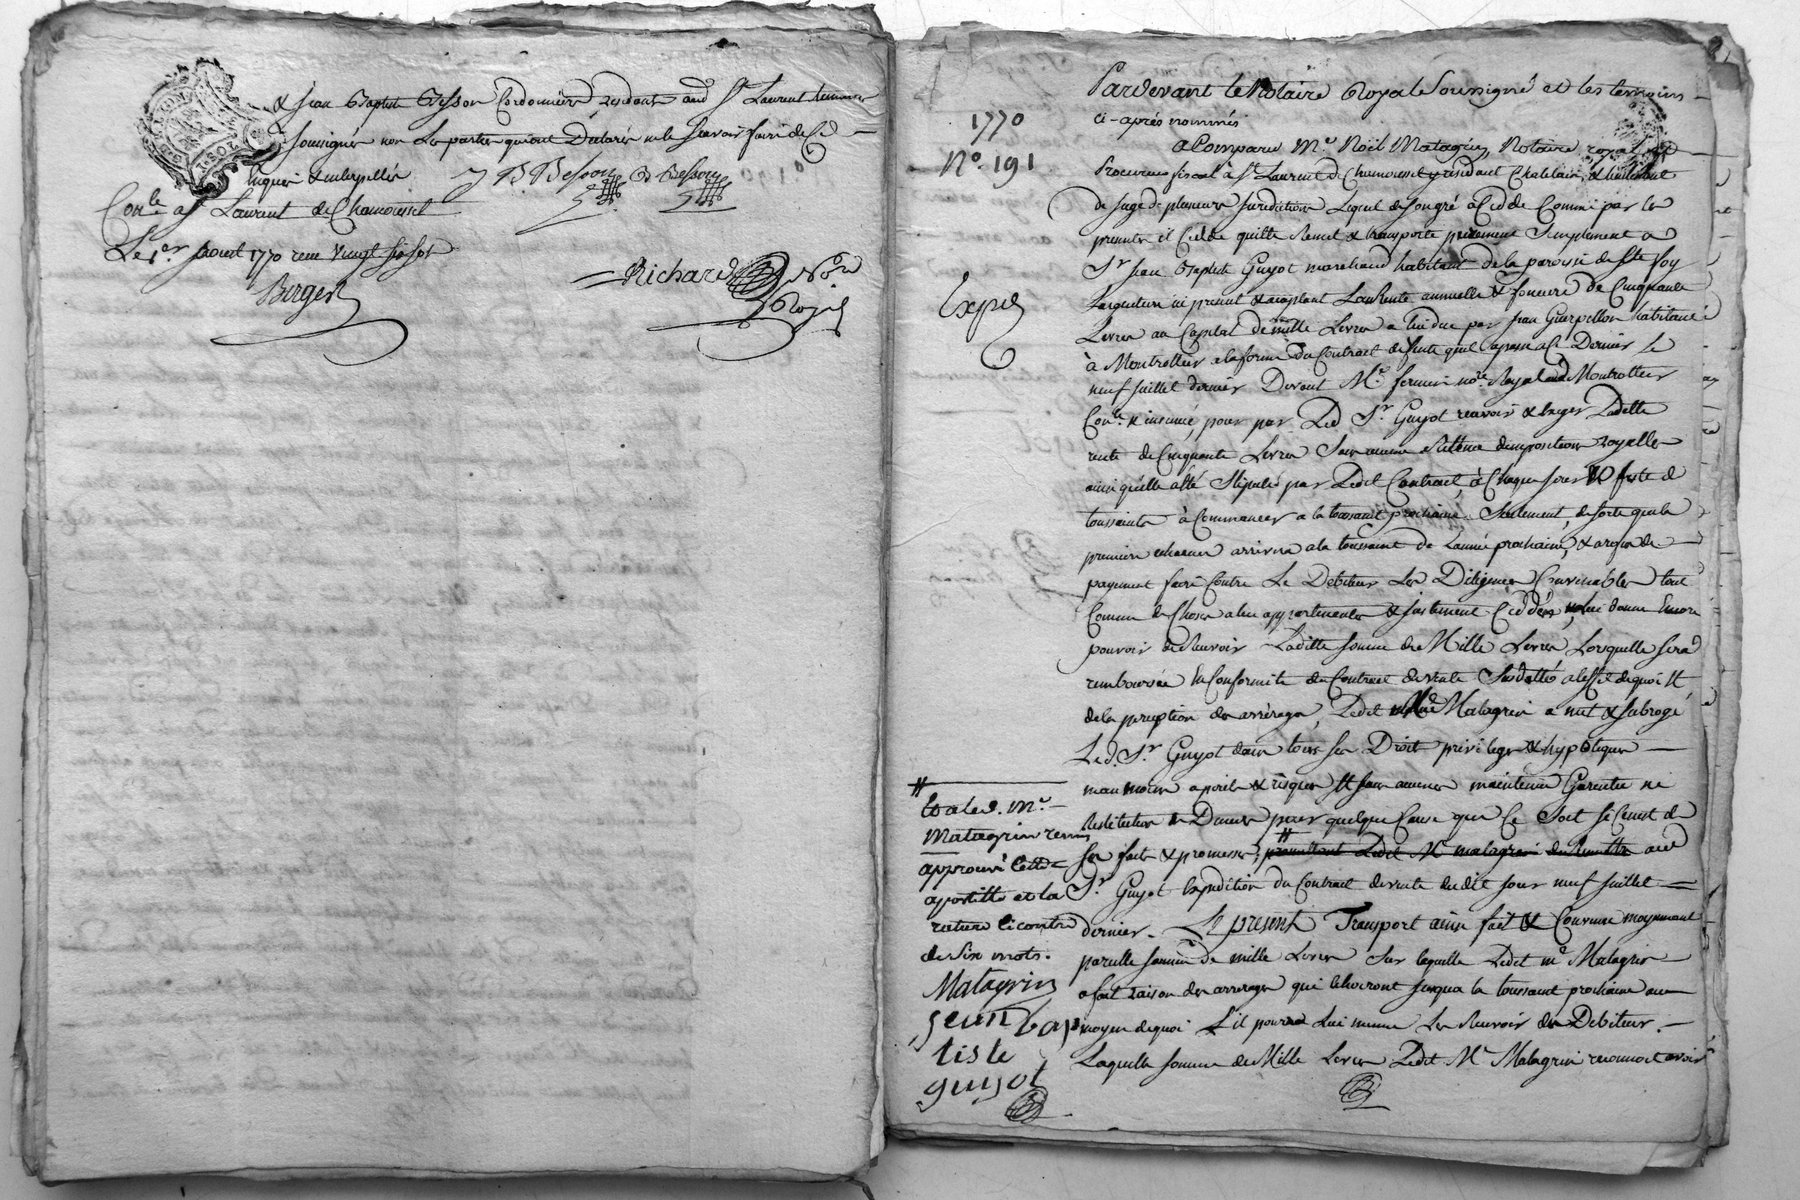 & jean Baptiste Besson Cordonnier residants aud St Laurent temoins
soussignés non les parties qui ont Declarés ne le sçavoir faire de Ce
enquis & interpellés J B Besson B Besson
Conlé a St Laurent de Chamousset
Le 1er aoust 1770 reçu vingt six sols
Berger
Richard Nore
Royal
1770
No. 191
Expié
Pardevant le Notaire Royal Soussigné et les temoins
ci-après nommés
a Comparu Me Noël Matagrin, Notaire royal et
Procureur fiscal à St Laurent de Chamousset y residant Chatelain, & lieutenant
de juge de plusieurs juridictions Lequel de son gré a Cedé Comme par les
presentes il Cedde quitte Remet & transporte purement Simplement a
Sr jean Baptiste Guyot marchand habitant de la paroisse de Ste foy
Largentiere ici present & acceptant La Rente annuelle & fonciere de Cinquante
Livres au Capital de mille Livres a lui due par jean Guerpillon habitant
à Montrottier a la forme Du Contract de vente quil a passé a Ce Dernier le
neuf juillet dernier Devant Me ferriere nore Royal aud Montrottier
Conlé & insinué, pour par Led Sr Guyot recevoir & exiger Ladette
rente de Cinquante Livres Sans aucune Retenue dimpositions royalles
ainsi quelle a été Stipulée par Ledit Contract, à Chaque jour & feste de
toussaints à Commancer a la toussaint prochaine Seulement, de sorte que la
premiere echeance arrivera a la toussaint de Lannée prochaine, & a reçu de
payement faire Contre Le Debiteur Les Diligences Convenables tout
Comme de Choses a lui appartenantes & justement Ceddées, & lui donne Encore
pouvoir de Recevoir Laditte somme de Mille Livres Lorsquelle sera
remboursée En Conformité du Contract de vente Susdatté a leffet de quoi &
de la perception des arrérages, Ledit Me Matagrin a mis & subrogé
Led. Sr Guyot dans tous ses Droits privileges & hypoteques
neanmoins a perils & risques & sans aucune maintenue Garentie ni
Restitution de Deniers pour quelque Cause que Ce Soit si Ce nest de
ses faits & promesses, promettant Ledit Me matagrin de Remettre aud
Sr Guyot Expedition du Contract de vente dudit jour neuf juillet
dernier. Le present Transport ainsi fait & Convenu moyennant
pareille somme de mille Livres Sur laquelle Ledit me Matagrin
a fait raison des arrerages qui echoiront jusqua la toussaint prochaine au
moyen de quoi il pourra Lui meme Les Recevoir du Debiteur.
Laquelle somme de Mille Livres Ledit Me Matagrin reconnoit avoir
Et aled. Me
Matagrin remis
approuvé lettde
apostille et la
rature licontre
de Six mots.
Matagrin
jean bap
tiste
guyot